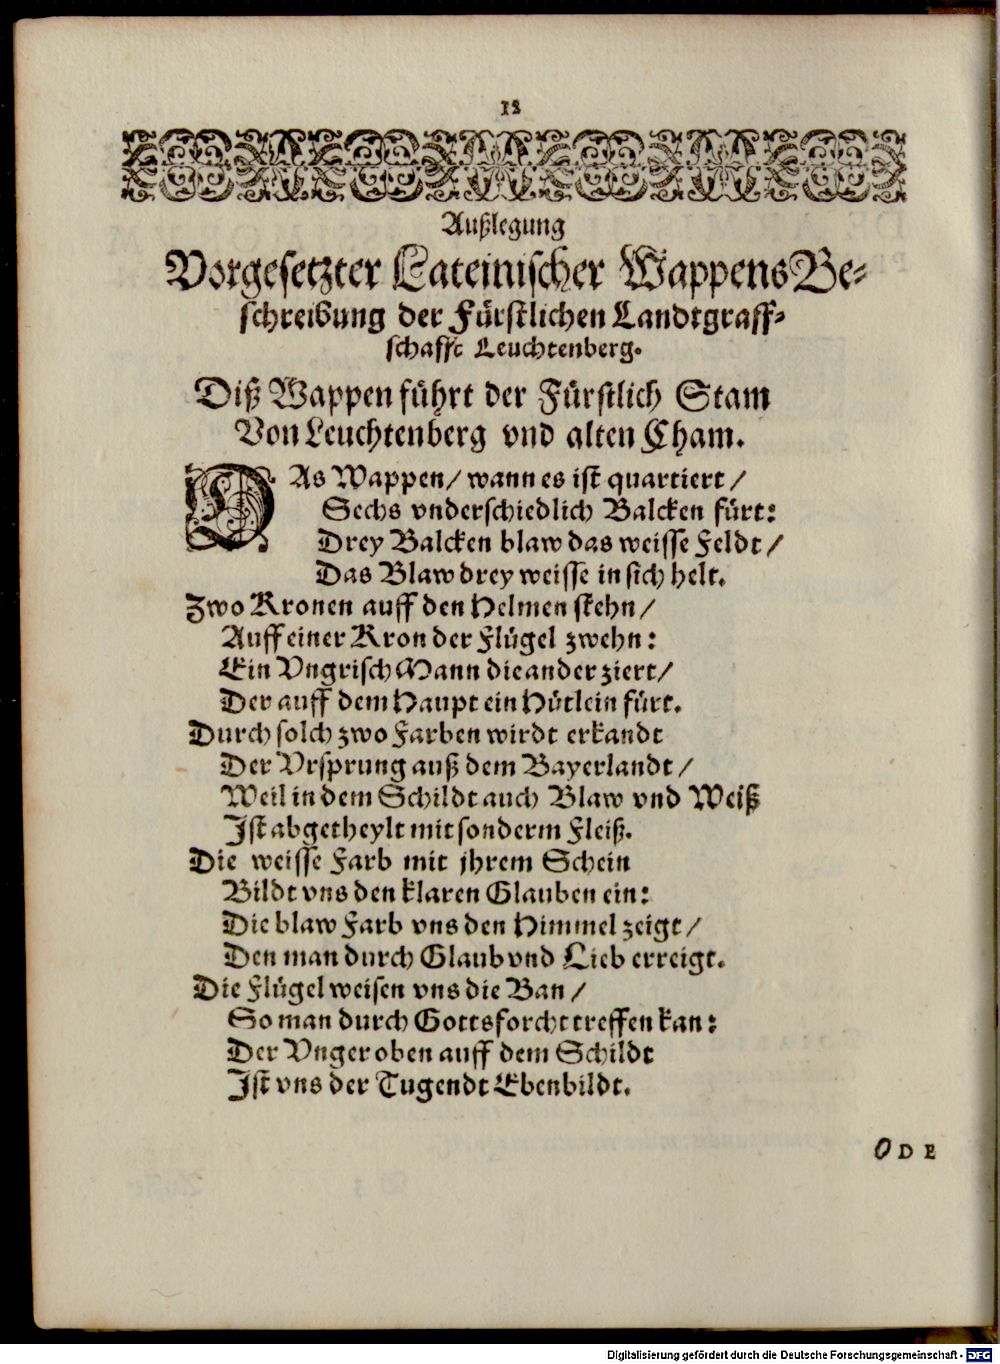 12
Außlegung
Vorgesetzter Lateinischer Wappens Be⸗
schreibung der Fürstlichen Landtgraff⸗
schafft Leuchtenberg.
Diß Wappen führt der Fürstlich Stam
Von Leuchtenberg vnd alten Cham.
DAs Wappen/ wann es ist quartiert/
Sechs vnderschiedlich Balcken fürt:
Drey Balcken blaw das weisse Feldt/
Das Blaw drey weisse in sich helt.
Zwo Kronen auff den Helmen stehn/
Auff einer Kron der Flügel zwehn:
Ein Vngrisch Mann die ander ziert/
Der auff dem Haupt ein Hütlein fürt.
Durch solch zwo Farben wirdt erkandt
Der Vrsprung auß dem Bayerlandt/
Weil in dem Schildt auch Blaw vnd Weiß
Ist abgetheylt mit sonderm Fleiß.
Die weisse Farb mit jhrem Schein
Bildt vns den klaren Glauben ein:
Die blaw Farb vns den Himmel zeigt/
Den man durch Glaub vnd Lieb erreigt.
Die Flügel weisen vns die Ban/
So man durch Gottsforcht treffen kan:
Der Vnger oben auff dem Schildt
Ist vns der Tugendt Ebenbildt.
ODE
Digitalisierung gefördert durch die Deutsche Forschungsgemeinschaft - DFG